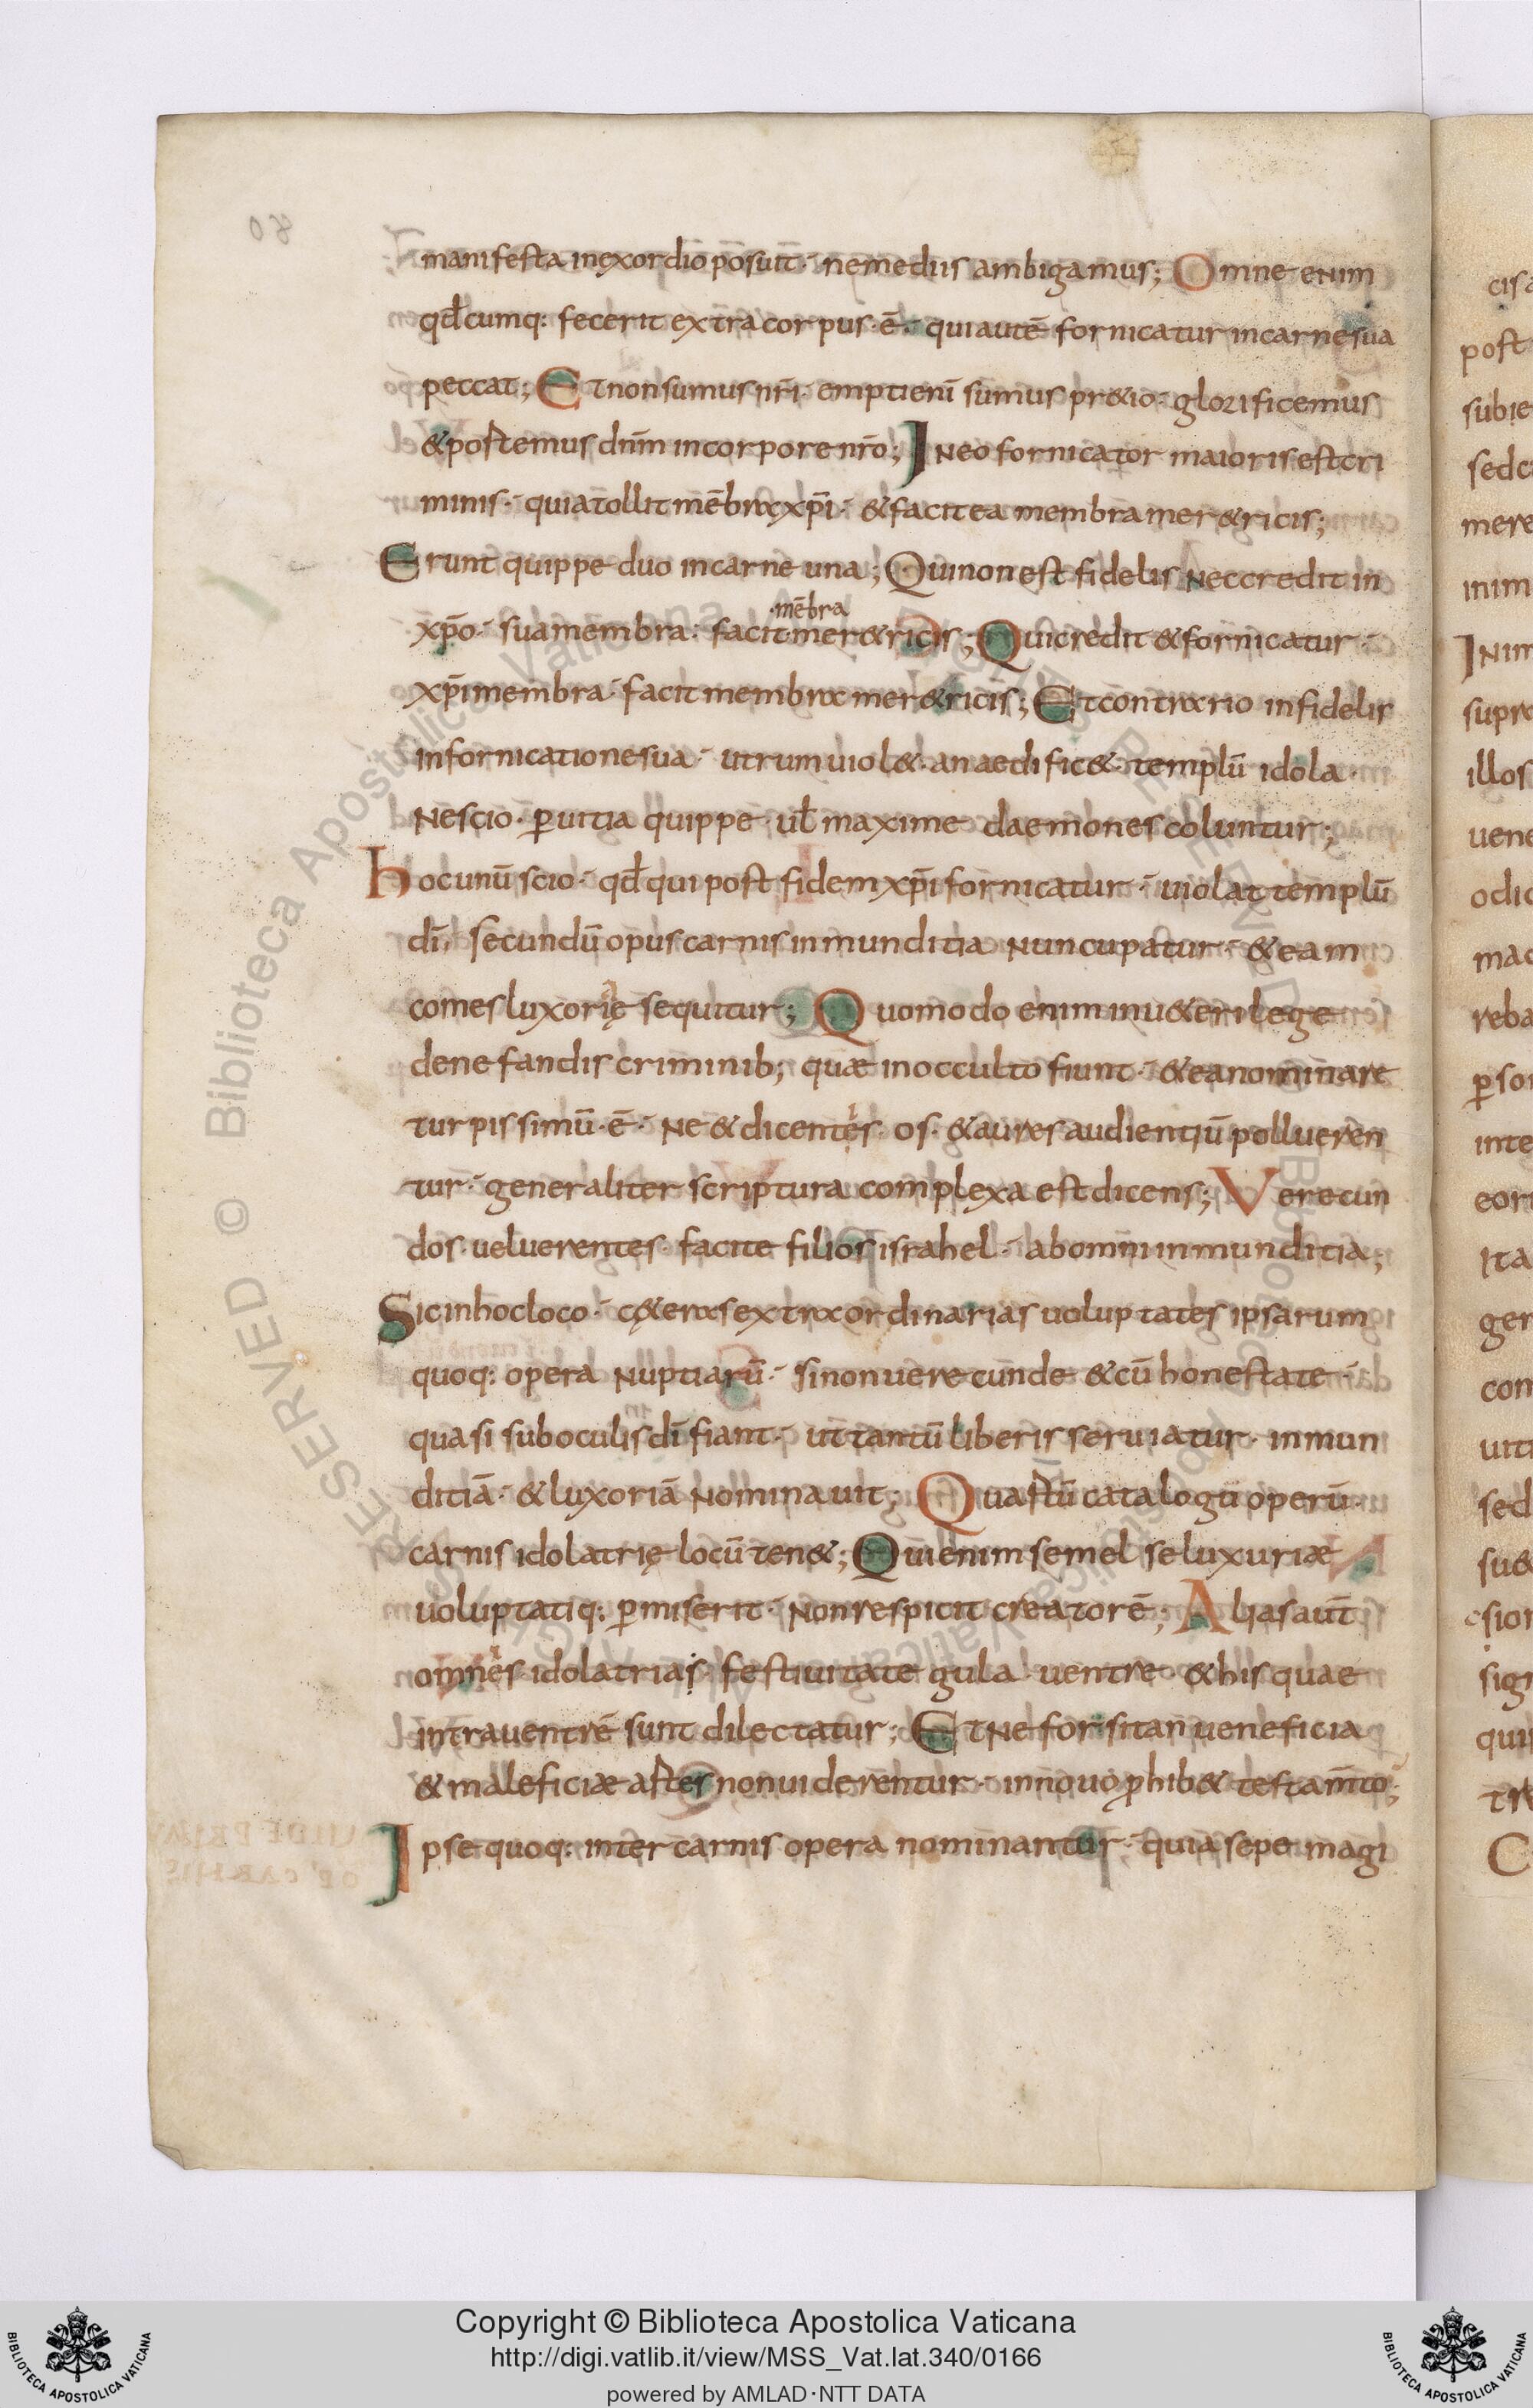 manifesta in exordio posuit· ne mediis ambigamus; Omne enim
qđcumq: fecerit extra corpus·ē· qui autē fornicatur in carne sua
peccat; Et non sumus nr̄i· empti enī sumus pr&io· glorificemus
& postemus dn̄m in corpore nr̄o; In eo fornicator maioris est cri
minis· quia tollit mēbra xp̄i· & facit ea membra mer&ricis;
Erunt quippe duo in carne una; Qui non est fidelis nec credit in
xp̄o· sua membra· facit ·mēbra mer&ricis; Qui credit & fornicatur·
xp̄i membra· facit membra mer&ricis; Et contrario infidelis
in fornicatione sua· utrum uiol&· an aedific&· templū idola·
Nescio· ꝑ uitia quippe· ul̄ maxime daemones coluntur;
hoc unū scio· qđ qui post fidem xp̄i fornicatur· uiolat templū
dī, secundū opus carnis inmunditia nuncupatur· & eam
comes luxorię sequitur; Quomodo enim in u&eri lege
de nefandis criminib; quæ in occulto fiunt· & ea nominare
turpissimū·ē· ne & dicentes· os· & aures audientiū pollueren
tur· generaliter scriptura complexa est dicens; Verecun
dos· uel uerentes· facite filios israhel· ab omni inmunditia;
Sic in hoc loco· c&eras extra ordinarias uoluptates ipsarum
quoq: opera nuptiarū· si non uerecunde & cū honestate·
quasi sub oculis dī fiant· ut tantū liberis seruiatur· inmun
ditiā· & luxoriā nominauit; Quastū catalogū operū·
carnis idolatrię locū ten&; Qui enim semel se luxuriæ
uoluptatiq: ꝑmiserit· non respicit creatorē; Alias aut̄
omnes· idolatrias· festiuitate gula· uentre· & his quae
intra uentrē sunt dilectatur; Et ne forsitan ueneficia
& maleficiæ aftes non uiderentur· in nouo ꝓhib& testam̄to;
Ipse quoq: inter carnis opera nominantur· quia sepe magi
Copyright © Biblioteca Apostolica Vaticana
http://digi.vatlib.it/view/MSS_Vat.lat.340/0166
powered by AMLAD·NTT DATA
BIBLIOTECA APOSTOLICA VATICANA
BIBLIOTECA APOSTOLICA VATICANA